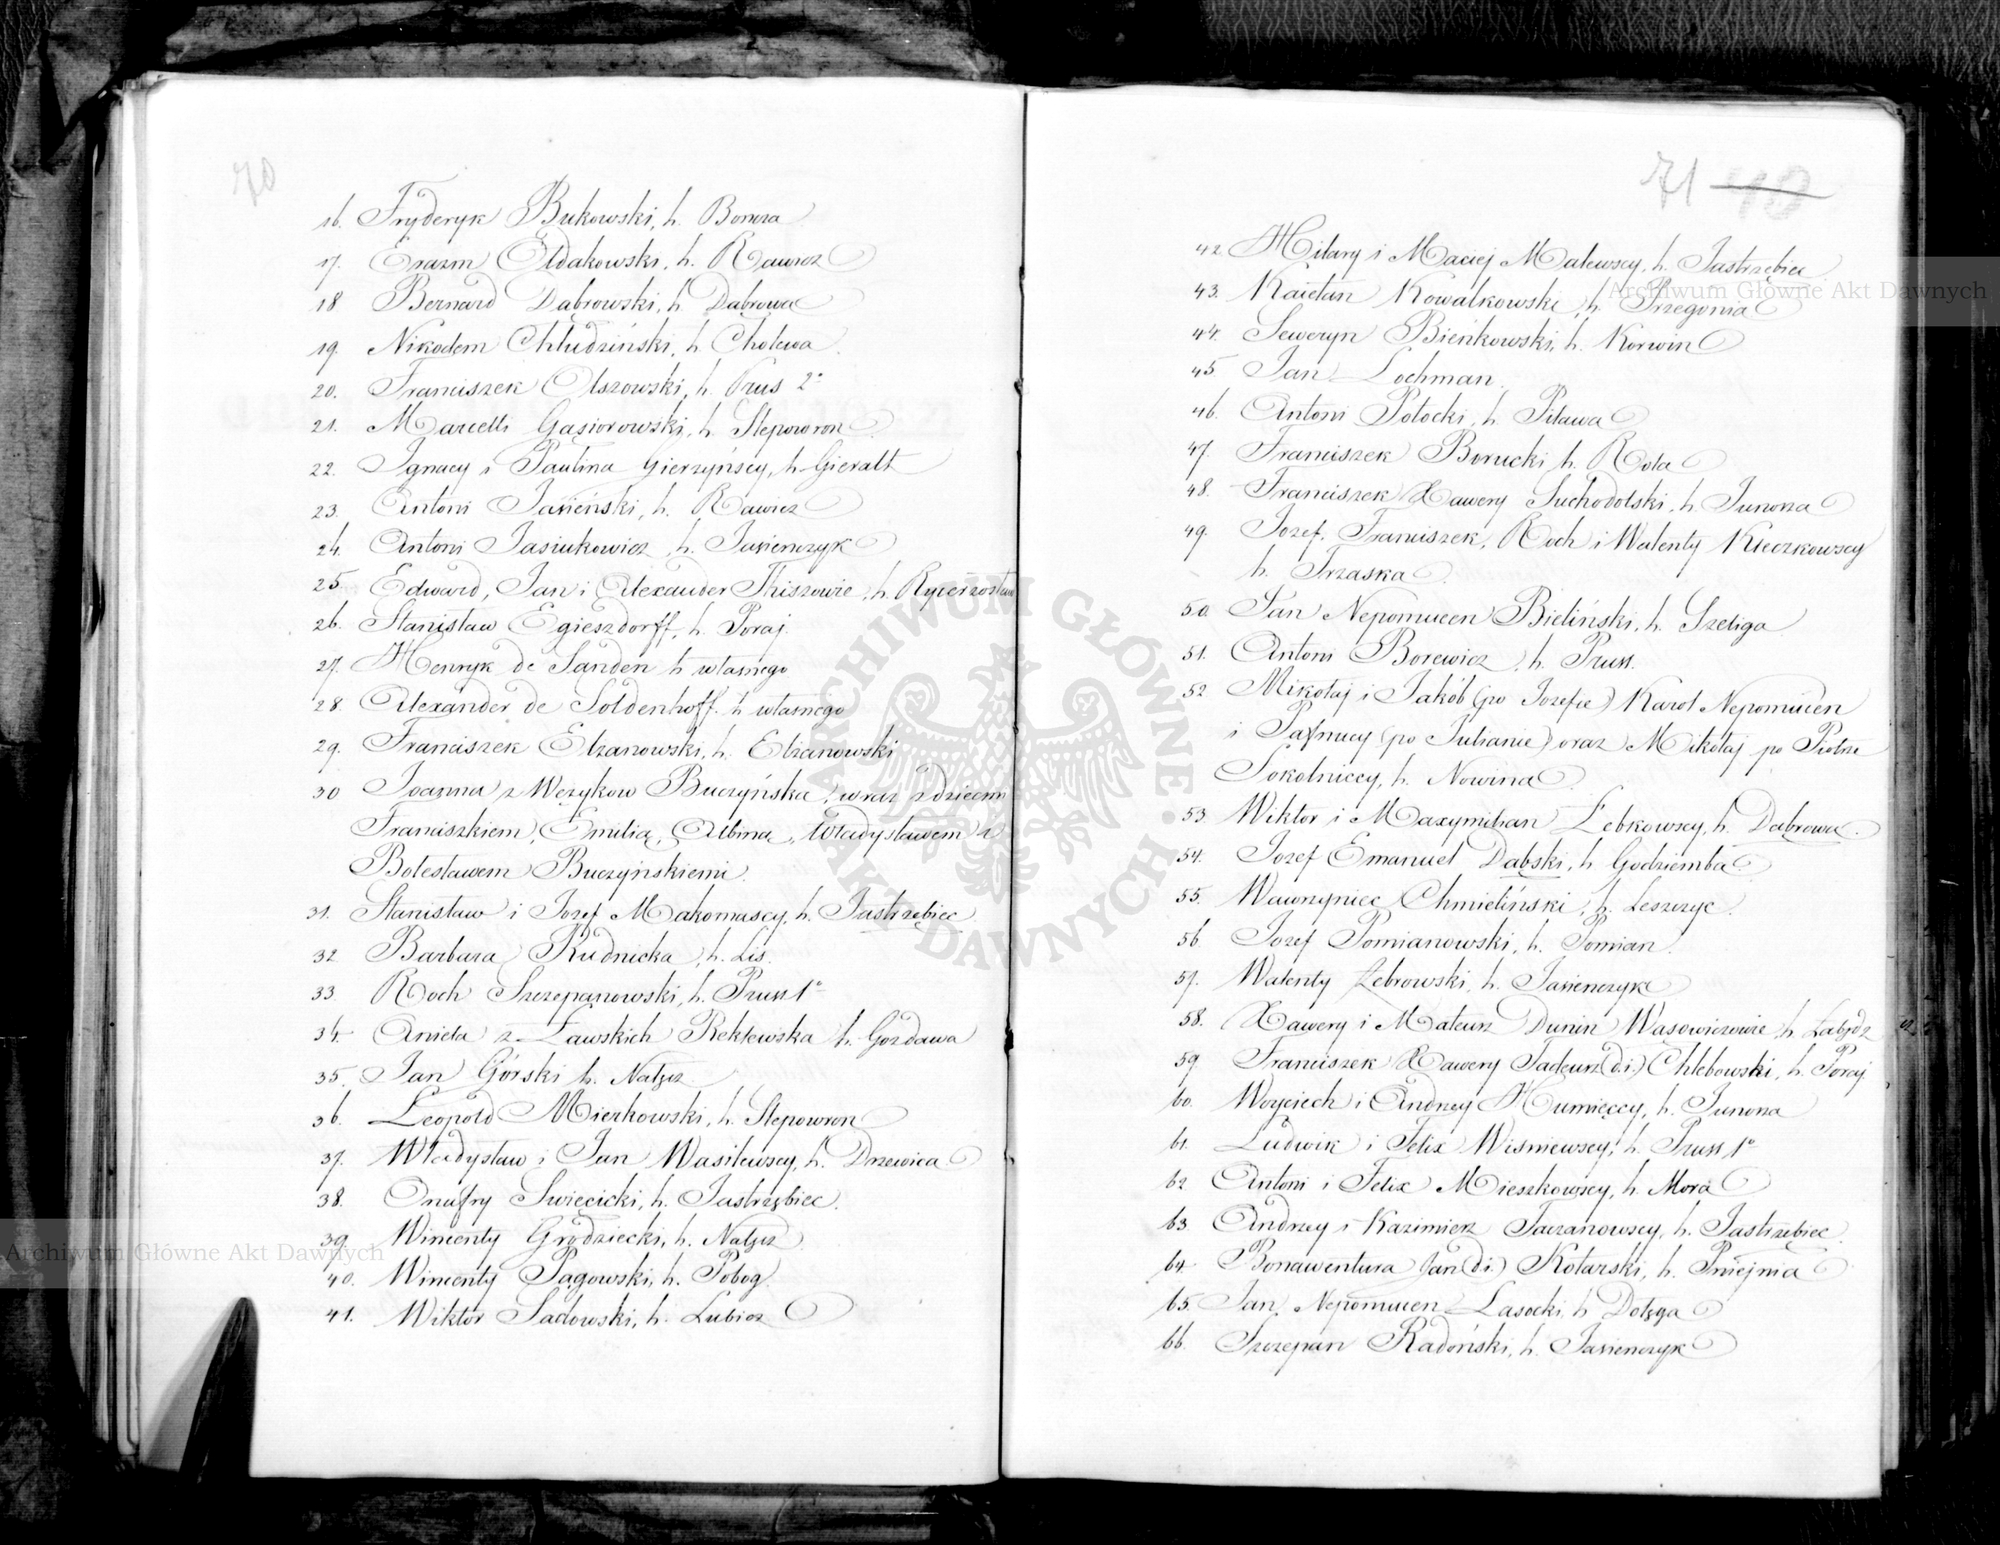 70
16. Fryderyk Bukowski, h. Boncza
17. Erazm Ołdakowski, h. Rawicz
18 Bernard Dąbrowski, h. Dąbrowa
19. Nikodem Chłudziński, h. Cholewa
20. Franciszek Olszowski, h. Prus 2°
21. Marcelli Gąsiorowski, h. Slepowron
22. Ignacy i Paulina Gierzyńscy, h. Gieralt
23. Antoni Jasieński, h. Rawicz
24. Antoni Jasiukowicz, h. Jasienczyk
25. Edward, Jan i Alexander Thiszowie, h.
26. Stanisław Egieszdorff, h. Poraj.
27. Henryk de Sanden h własnego
28. Alexander de Soldenhoff. h własnego
29. Franciszek Elżanowski, h. Elżanowski
30 Joanna z Wężyków Buczyńska, wraz z dziećmi
Franciszkiem, Emilią, Albiną, Władysławem i
Bolesławem Buczyńskiemi.
31. Stanisław i Jozef Makomascy, h. Jastrzębiec
32 Barbara Rudnicka, h. Lis.
33. Roch Szczepanowski, h. Pruss 1°
34. Aniela z Ławskich Reklewska h. Gozdawa
35. Jan Górski h. Nałęcz
36. Leopold Mierkowski, h. Slepowron
37. Władysław i Jan Wasilewscy, h. Drzewica
38. Onufry Swięcicki, h. Jastrzębiec.
39. Wincenty Grodziecki, h. Nałęcz
40. Wincenty Pągowski, h. Pobog
41. Wiktor Sadowski, h. Lubicz
71 40
42. Hilary i Maciej Malewscy, h. Jastrzębiec
43. Kaietan Kowalkowski, h. Przegonia
44. Seweryn Bieńkowski, h. Korwin
45. Jan Lochman.
46. Antoni Potocki, h. Piława
47. Franciszek Borucki h. Rola
48. Franciszek Xawery Suchodolski, h. Junosza
49. Jozef, Franciszek, Roch i Walenty Kleczkowscy
h. Trzaska
50. Jan Nepomucen Bieliński, h. Szeliga
51. Antoni Borewicz, h. Pruss.
52 Mikołaj i Jakób (po Jozefie) Karol Nepomucen
i Pafnucy (po Julianie) oraz Mikołaj po Piotrze
Sokolniccy, h. Nowina
53. Wiktor i Maxymilian Łebkowscy, h. Dąbrowa.
54. Jozef Emanuel Dąbski, h. Godziemba
55. Wawrzyniec Chmieliński, h. Leszczyc.
56. Jozef Pomianowski, h. Pomian.
57. Walenty Żebrowski, h. Jasienczyk
58. Xawery i Mateusz Dunin Wąsowiczowie, h. Łabędz
59. Franciszek Xawery Tadeusz (3.i.) Chlebowski, h. Poraj
60. Woyciech i Andrzey Humięccy, h. Junosza
61. Ludwik i Felix Wiśniewscy, h. Pruss 1°
62 Antoni i Felix Mieszkowscy, h. Mora
63. Andrzey i Kazimierz Taczanowscy, h. Jastrzębiec
64. Bonawentura Jan (2i.) Kotarski, h. Pniejnia
65. Jan Nepomucen Lasocki, h Dołęga
66. Szczepan Radoński, h. Jasienczyk
Archiwum Główne Akt Dawnych
Archiwum Główne Akt Dawnych
ARCHIWUM GŁÓWNE AKT DAWNYCH